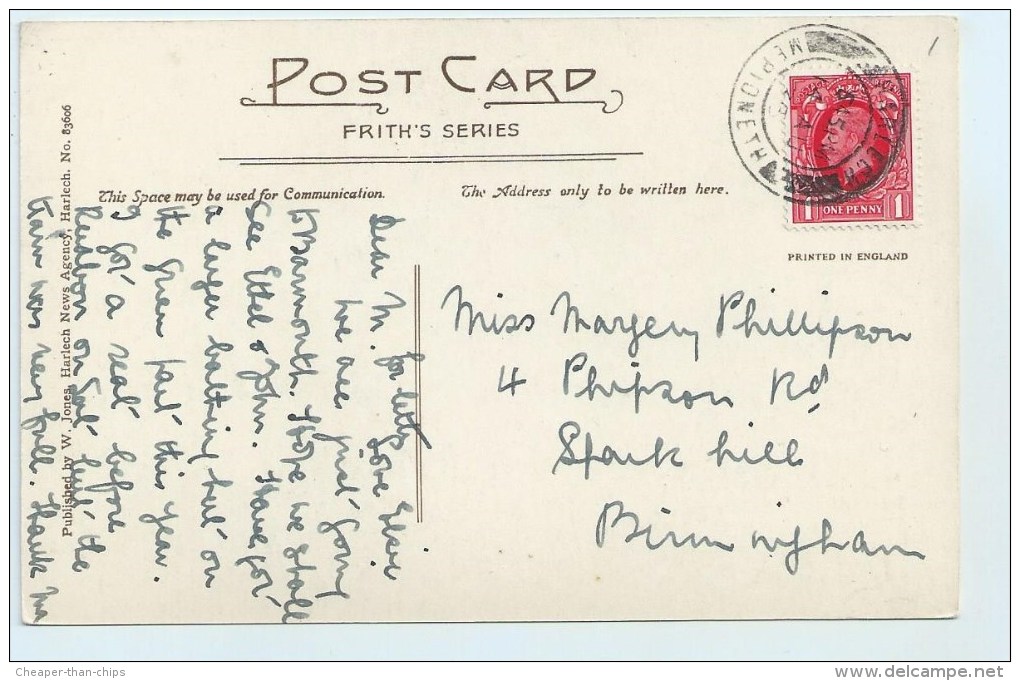 POST CARD
FRITH'S SERIES
This Space may be used for Communication.
The Address only to be written here.
Published by W. Jones, Harlech News Agency, Harlech. No. 83606
MERIONETH
ONE PENNY
1 1
PRINTED IN ENGLAND
Miss Margery Phillipson
4 Phipson Rd
Spark hill
Birmingham
Dear M.
We are just going
to Barmouth. Hope we shall
see Ethel & John. Have got
a larger bathing hut on
the green part this year.
I got a seat before
Ruabon on Sat but the
train was very full. Thank Ma
for
Love Elsie.
Cheaper-than-chips
www.delcampe.net